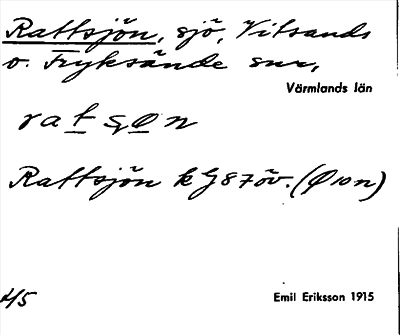 Rattsjön, sjö, Vitsands
o. Fryksände snr,
Värmlands län
ratsøn
Rattsjön k G87öv. (Ø10n)
4/5
Emil Eriksson 1915